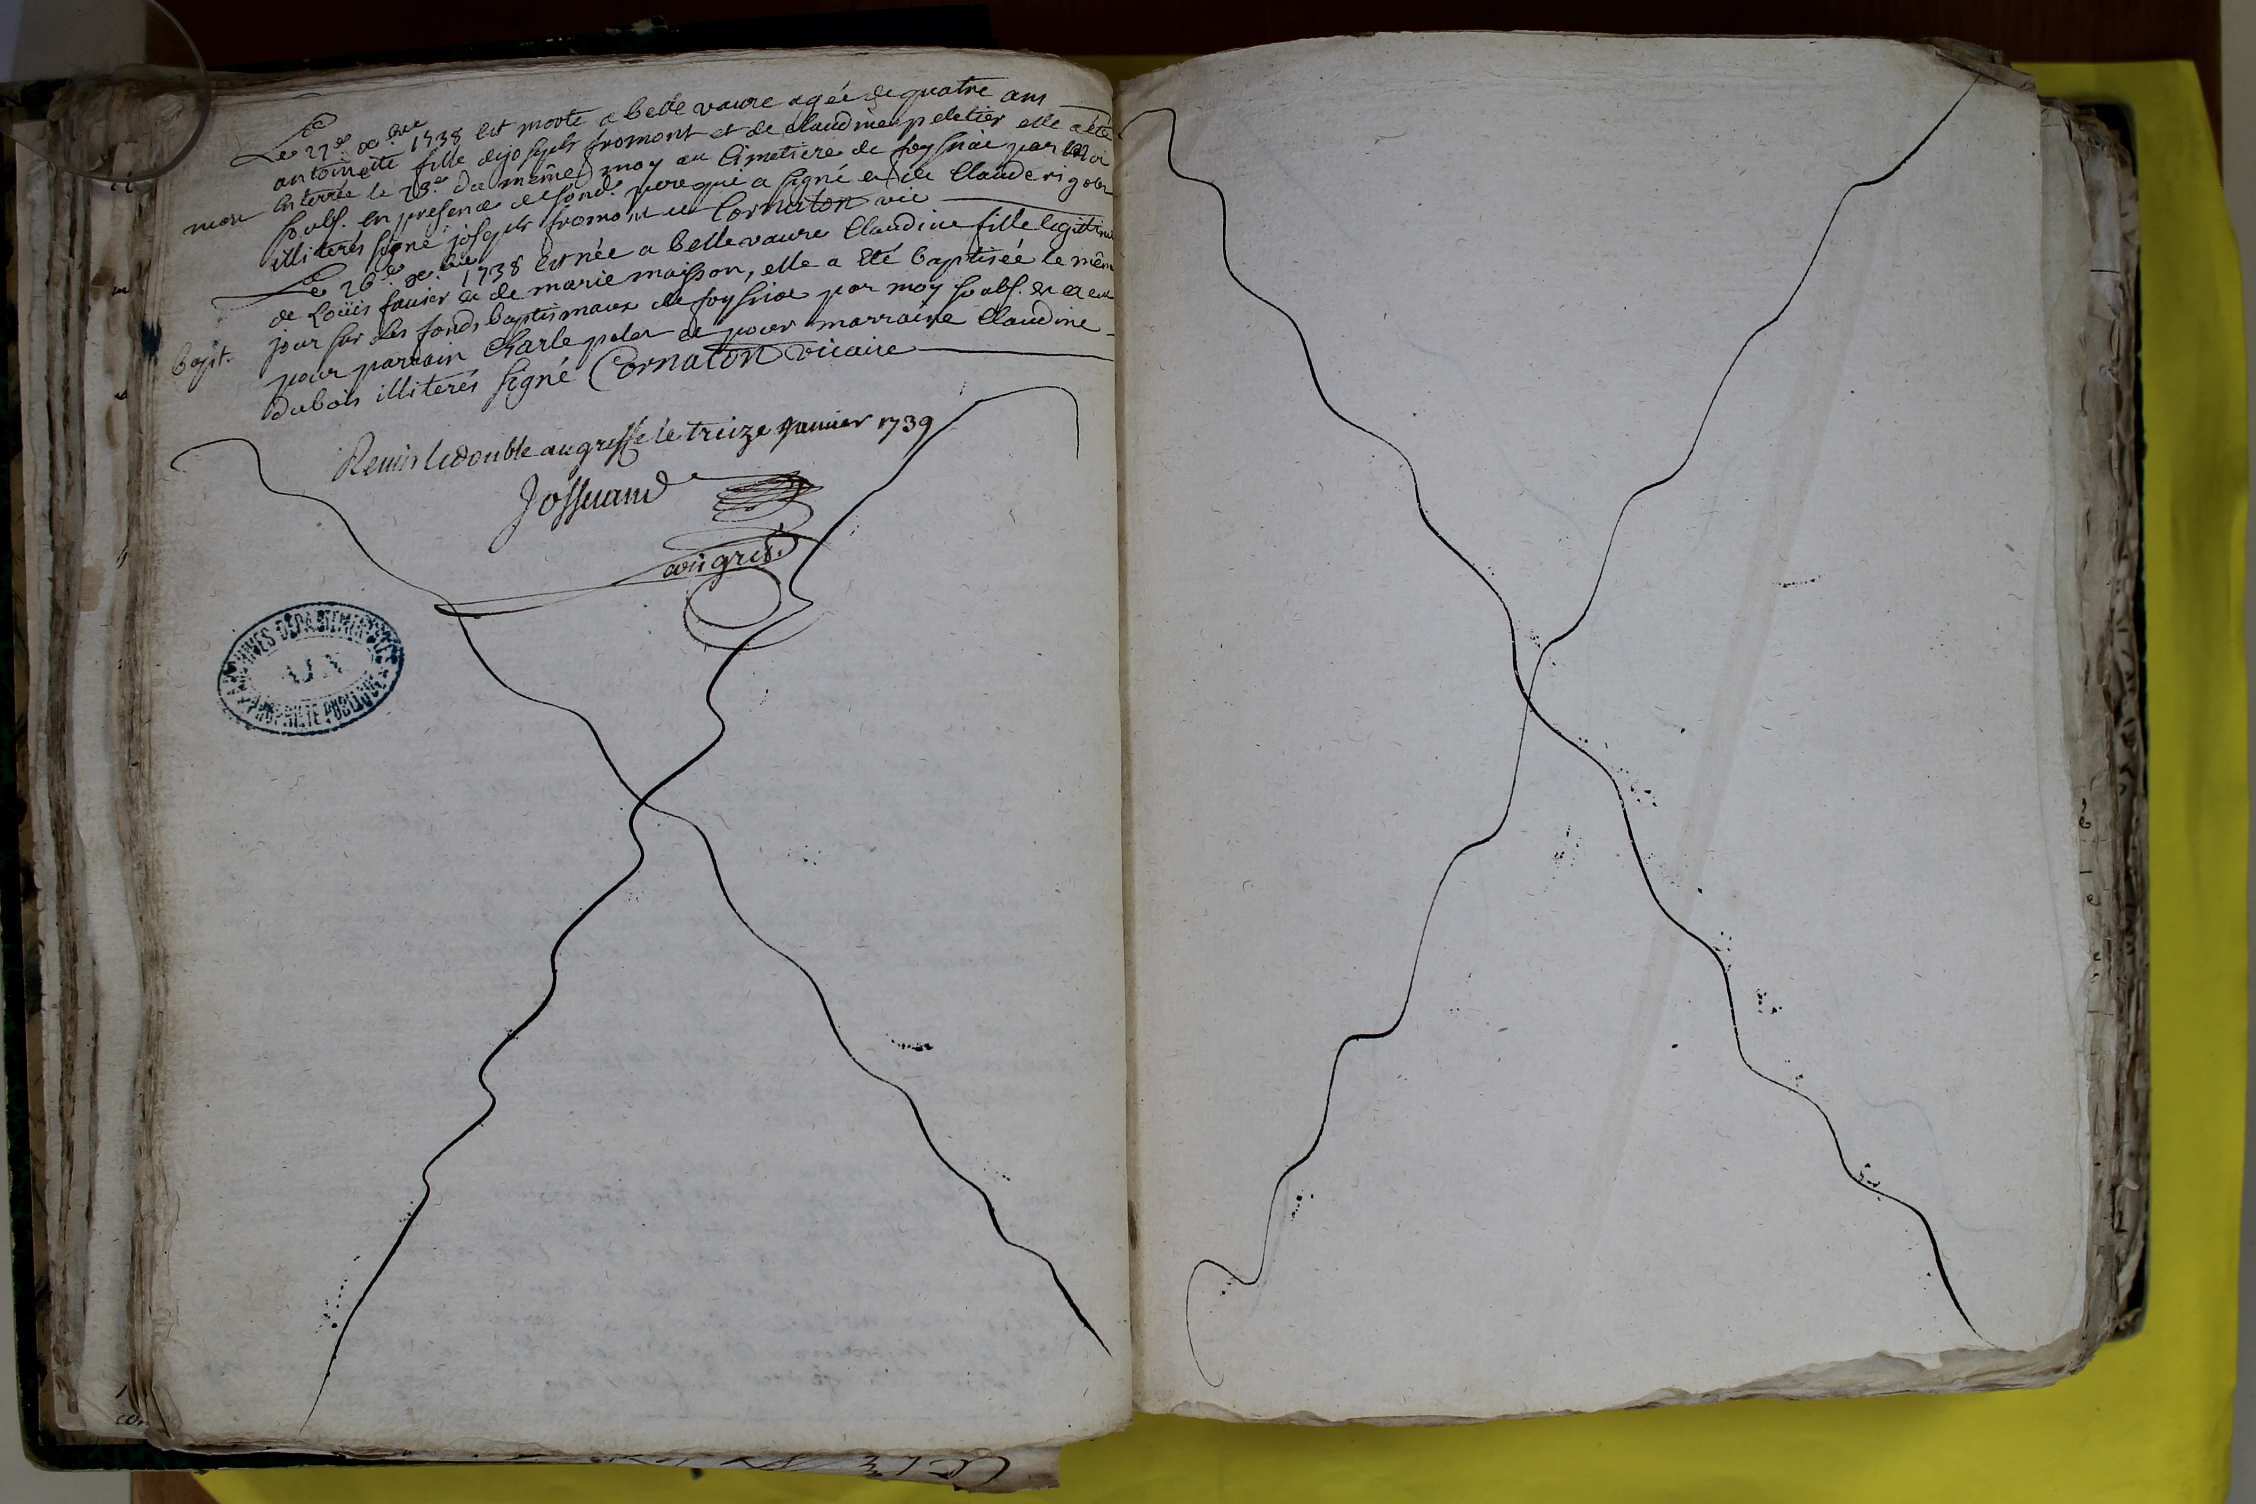 Le 27e xbre 1738 est morte a belle vaure agée de quatre ans
antoinette fille de joseph fromont et de claudine peletier elle a été
mort enterrée le 28e du même moy au Cimetiere de foyssiae par moi
soubs. en presence de sond. pere qui a signé et de Claude rigolet
illiterés signé joseph fromont et Cornaton vic
Le 26e xbre 1738 est née a belle vaure Claudine fille legitime
de Loüis favier et de marie maisson, elle a été baptisée le mêm
jour sur les fonds baptismaux de foyssiae par moy soubs. et a eu
bapt. pour parrain Charle pelet et pour marraine Claudine
dubois illiterés signé Cornaton vicaire
Remis le double au greffe le treize janvier 1739
Josserand
ARCHIVES DÉPARTEMENTALES
AIN
PROPRIÉTÉ PUBLIQUE